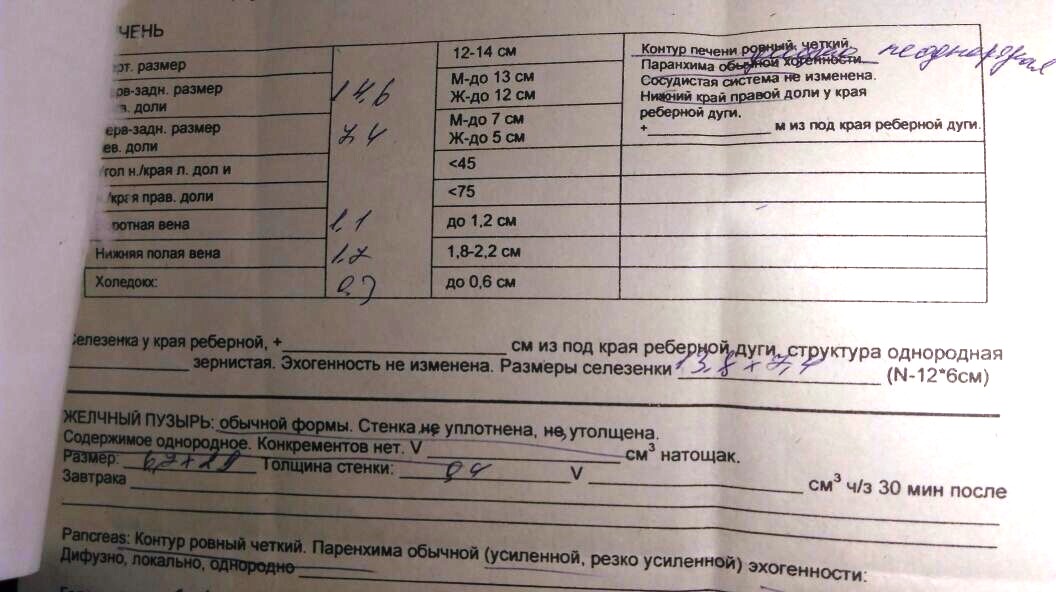 ЧЕНЬ
рт. размер
12-14 см
Контур печени ровный, четкий.
неоднородная
Паранхима обычной хогенности.
рв-задн. размер
в. доли
14,6
М-до 13 см
Ж-до 12 см
Сосудистая система не изменена.
Нижний край правой доли у края
реберной дуги.
ерв-задн. размер
ев. доли
7,4
М-до 7 см
Ж-до 5 см
+ м из под края реберной дуги.
гол н./края л. дол и
<45
./края прав. доли
<75
ротная вена
1,1
до 1,2 см
Нижняя полая вена
1,7
1,8-2,2 см
Холедокх:
0,3
до 0,6 см
Селезенка у края реберной, + см из под края реберной дуги, структура однородная
зернистая. Эхогенность не изменена. Размеры селезенки 13,8 x 7,4 (N-12*6см)
ЖЕЛЧНЫЙ ПУЗЫРЬ: обычной формы. Стенка не уплотнена, не утолщена.
Содержимое однородное. Конкрементов нет. V см³ натощак.
Размер: 6,7 x 2,9 Толщина стенки: 0,4 V см³ ч/з 30 мин после
Завтрака
Pancreas: Контур ровный четкий. Паренхима обычной (усиленной, резко усиленной) эхогенности:
Дифузно, локально, однородно